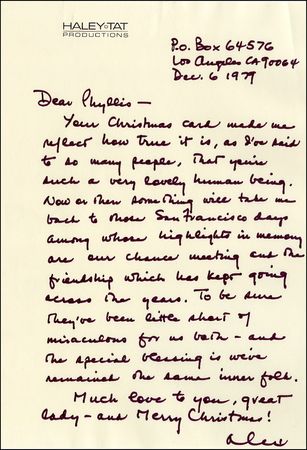 HALEY•TAT
PRODUCTIONS
P.O. Box 64576
Los Angeles CA 90064
Dec. 6 1979
Dear Phyllis —
Your Christmas card made me
reflect how true it is, as I've said
to so many people, that you're
such a very lovely human being.
Now or then something will take me
back to those San Francisco days
among whose highlights in memory
are our chance meeting and the
friendship which has kept going
across the years. To be sure
they've been little short of
miraculous for us both — and
the special blessing is we've
remained the same inner folk.
Much love to you, great
lady — and Merry Christmas!
Alex